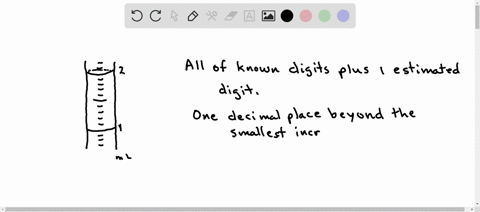 2
1
mL
All of known digits plus 1 estimated
digit.
One decimal place beyond the
smallest incr